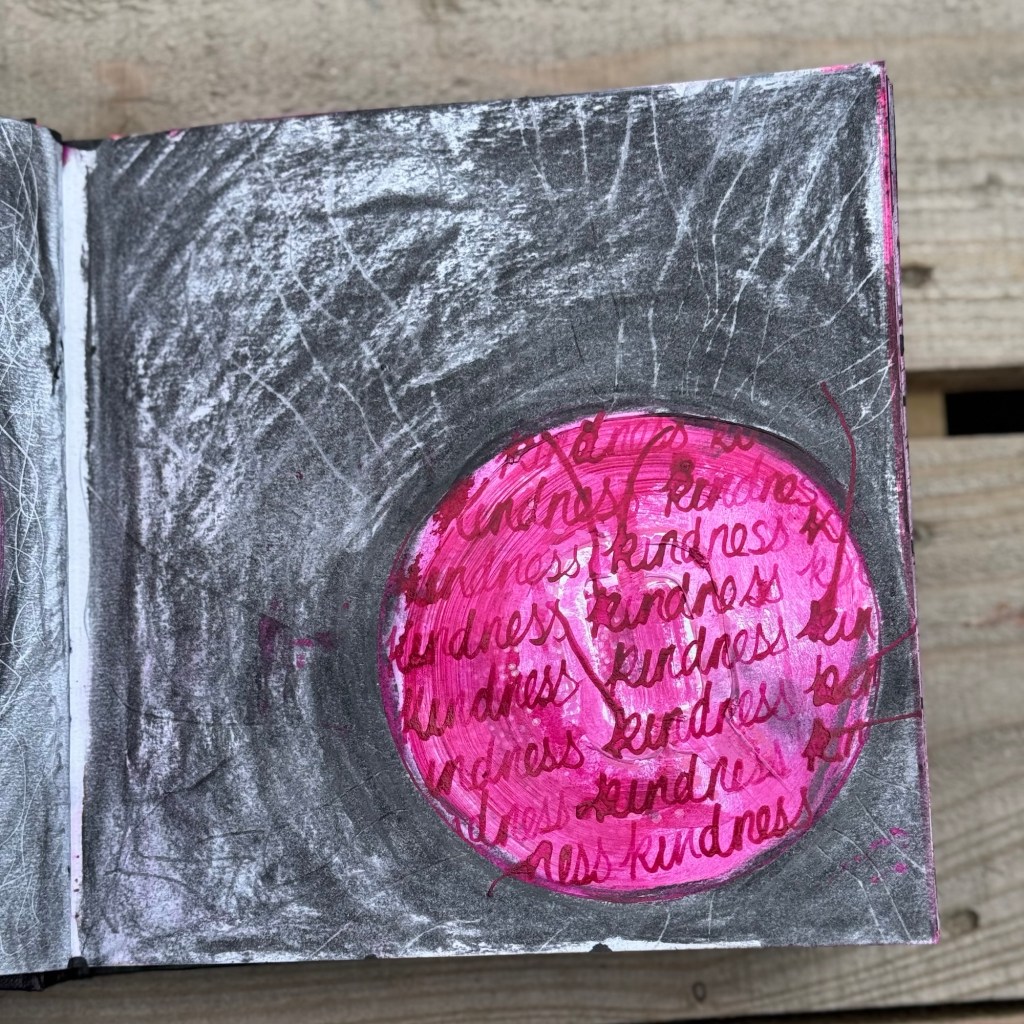 kindness ki
kindness kindness
kindness kindness k
kindness kindness kin
kindness kindness kin
ndness kindness k
dness kindness
ness kindness